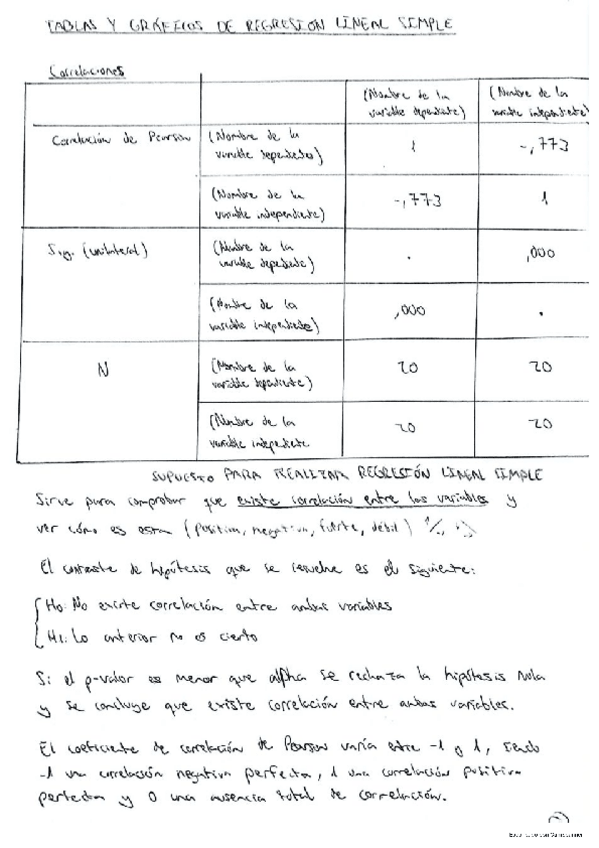 TABLAS Y GRÁFICOS DE REGRESIÓN LINEAL SIMPLE
Correlaciones
(Nombre de la variable dependiente) (Nombre de la variable independiente)
Correlación de Pearson (Nombre de la variable dependiente) 1 -,773
(Nombre de la variable independiente) -,773 1
Sig. (unilateral) (Nombre de la variable dependiente) . ,000
(Nombre de la variable independiente) ,000 .
N (Nombre de la variable dependiente) 20 20
(Nombre de la variable independiente 20 20
SUPUESTO PARA REALIZAR REGRESIÓN LINEAL SIMPLE
Sirve para comprobar que existe correlación entre las variables y
ver cómo es esta (positiva, negativa, fuerte, débil)
El contraste de hipótesis que se resuelve es el siguiente:
Ho: No existe correlación entre ambas variables
H1: Lo anterior no es cierto
Si el p-valor es menor que alpha se rechaza la hipótesis nula
y se concluye que existe correlación entre ambas variables.
El coeficiente de correlación de Pearson varía entre -1 y 1, siendo
-1 una correlación negativa perfecta, 1 una correlación positiva
perfecta y 0 una ausencia total de correlación.